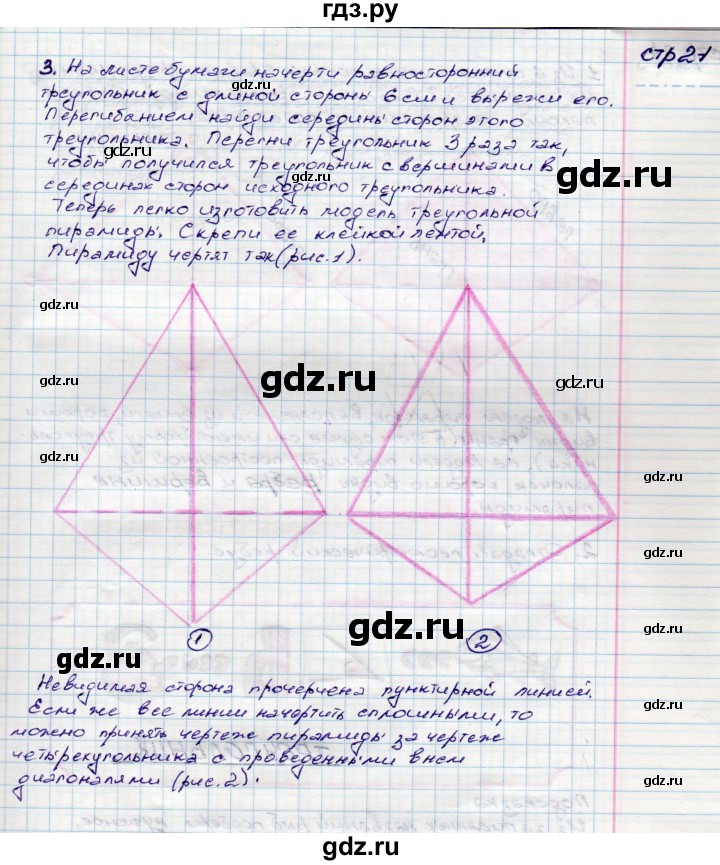 гдз.ру
стр 21
3. На листе бумаги начерти равносторонний
треугольник с длиной стороны 6см и вырежи его.
Перегибанием найди середины сторон этого
треугольника. Перегни треугольник 3 раза так,
чтобы получился треугольник с вершинами в
серединах сторон исходного треугольника.
Теперь легко изготовить модель треугольной
пирамиды. Скрепи ее клейкой лентой.
Пирамиду чертят так (рис.1).
gdz.ru
gdz.ru
gdz.ru
gdz.ru
gdz.ru
gdz.ru
gdz.ru
gdz.ru
gdz.ru
gdz.ru
gdz.ru
1
2
gdz.ru
Невидимая сторона прочерчена пунктирной линией.
Если же все линии начертить сплошными, то
можно принять чертеж пирамиды за чертеж
четырехугольника с проведенными в нем
диагоналями (рис.2).
gdz.ru
gdz.ru
gdz.ru